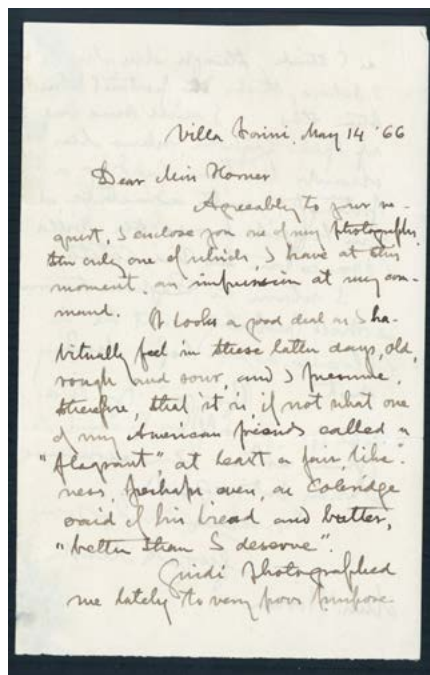 Villa Forini, May 14 '66
Dear Miss Horner
Agreeably to your re-
quest, I enclose you one of my photographs,
the only one of which, I have at this
moment, an impression at my com-
mand. It looks a good deal as I ha-
bitually feel in these latter days, old,
rough and sour, and I presume,
therefore, that it is if not what one
of my American friends called a
"flagrant", at least a fair, like-
ness, perhaps even, as Coleridge
said of his bread and butter,
"better than I deserve".
Guidi photographed
me lately to very poor purpose